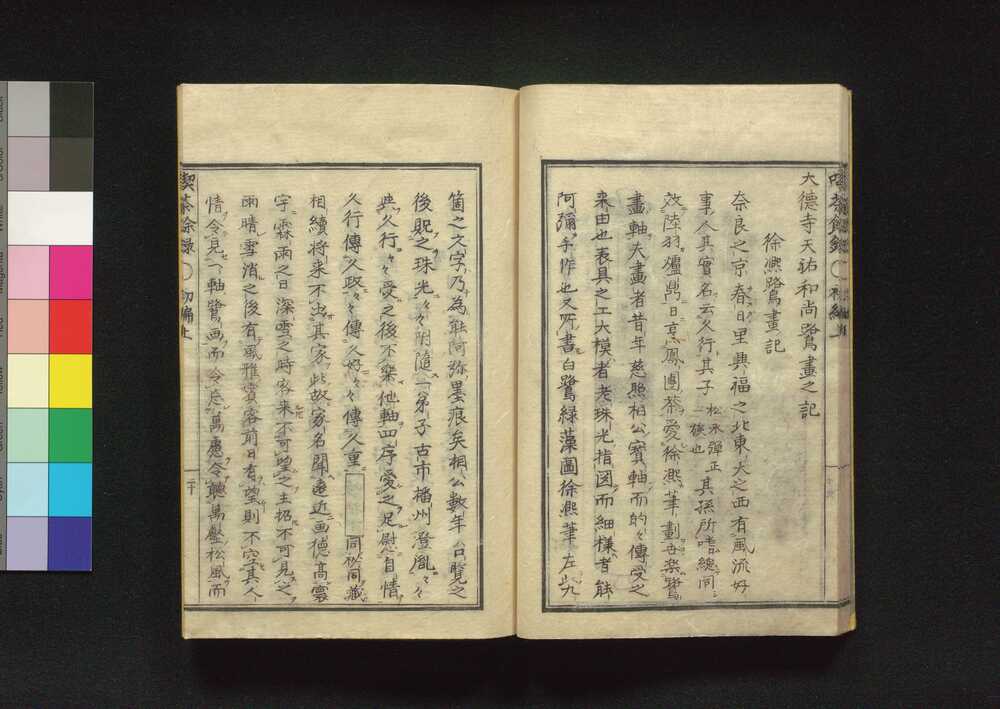 大德寺天祐和尚鷺畫之記
徐熈鷺畫記
奈良之京春日里興福之北東大之西有風流好
事人其實名云久行其子松永彈正其孫所嗜總同
一族也
效陸羽爐鼎日烹鳳團茶愛徐熈筆劃
畫軸夫畫者昔年慈照相公寳軸而的々傳受之
来由也表具之工大模者老珠光指図而細様者能
阿彌手作也又所書白鷺緑藻圖徐熈筆左此九
箇之文字乃為能阿弥墨痕矣相公數年台覽之
後貺之珠光々々附隨一弟子古市播州澄胤々々
典久行々々受之後不樂他軸四序愛之足慰自情
久行傳久政々々傳久好々々傳久重同訟同藏
相續将来不出其家此故家名聞遠近画德高寰
宇霖雨之日深雪之時客来不可望之主招不可見之
雨晴雪消之後有風雅賓客前日有望則不空其人
情令見一軸鷺画而令忘萬慮令聽萬壑松風而
喫茶餘録
初編上